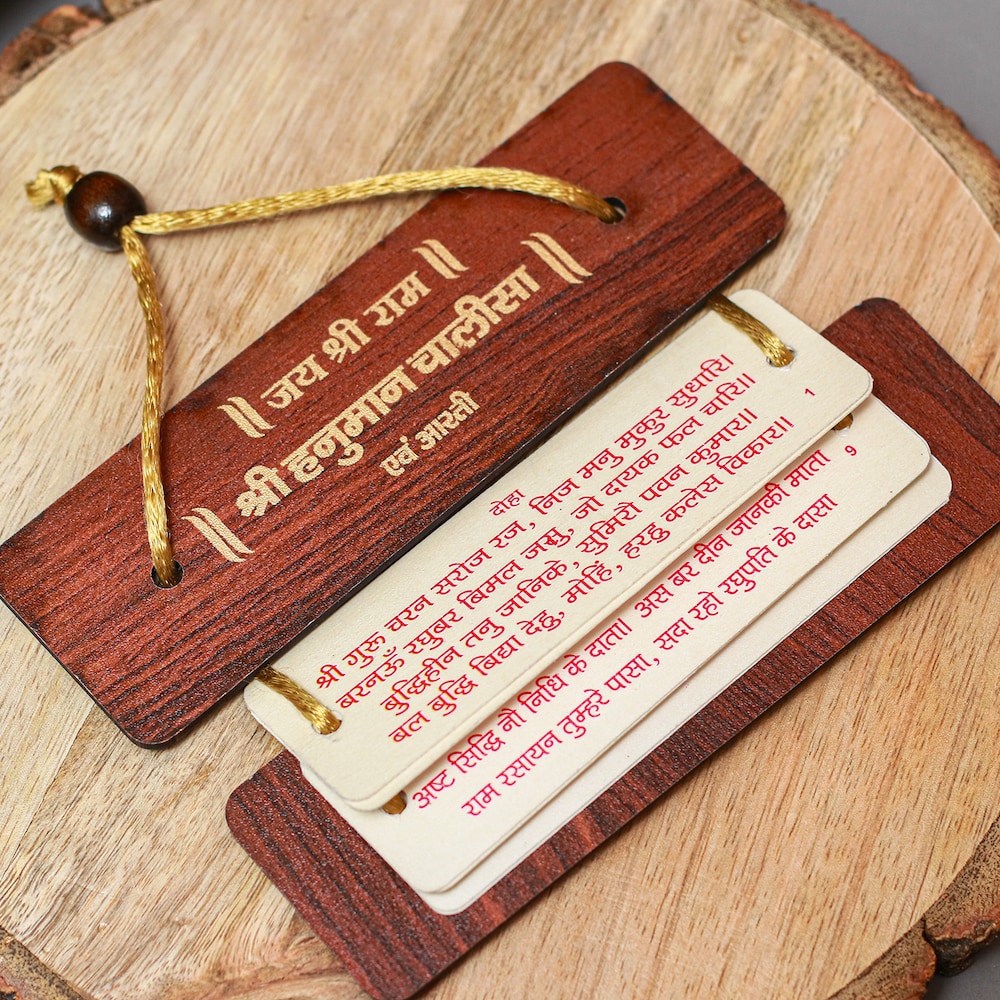 ॥ जय श्री राम ॥
॥ श्री हनुमान चालीसा ॥
एवं आरती
दोहा
श्री गुरु चरन सरोज रज, निज मनु मुकुर सुधारि।
बरनऊँ रघुबर बिमल जसु, जो दायक फल चारि॥
बुद्धिहीन तनु जानिके, सुमिरौ पवन कुमार॥
बल बुद्धि बिद्या देहु, मोहिं, हरहु कलेस विकार॥
1
अष्ट सिद्धि नौ निधि के दाता। अस बर दीन जानकी माता
राम रसायन तुम्हरे पासा, सदा रहो रघुपति के दासा
9